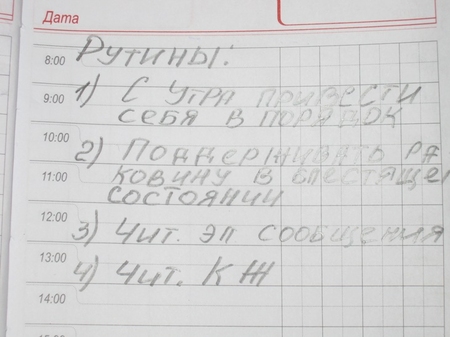 Дата
8:00 Рутины:
9:00 1) С утра привести
себя в порядок
10:00 2) Поддерживать ра
11:00 ковину в блестяще
состоянии
12:00 3) Чит. эл сообщения
13:00 4) Чит. КЖ
14:00